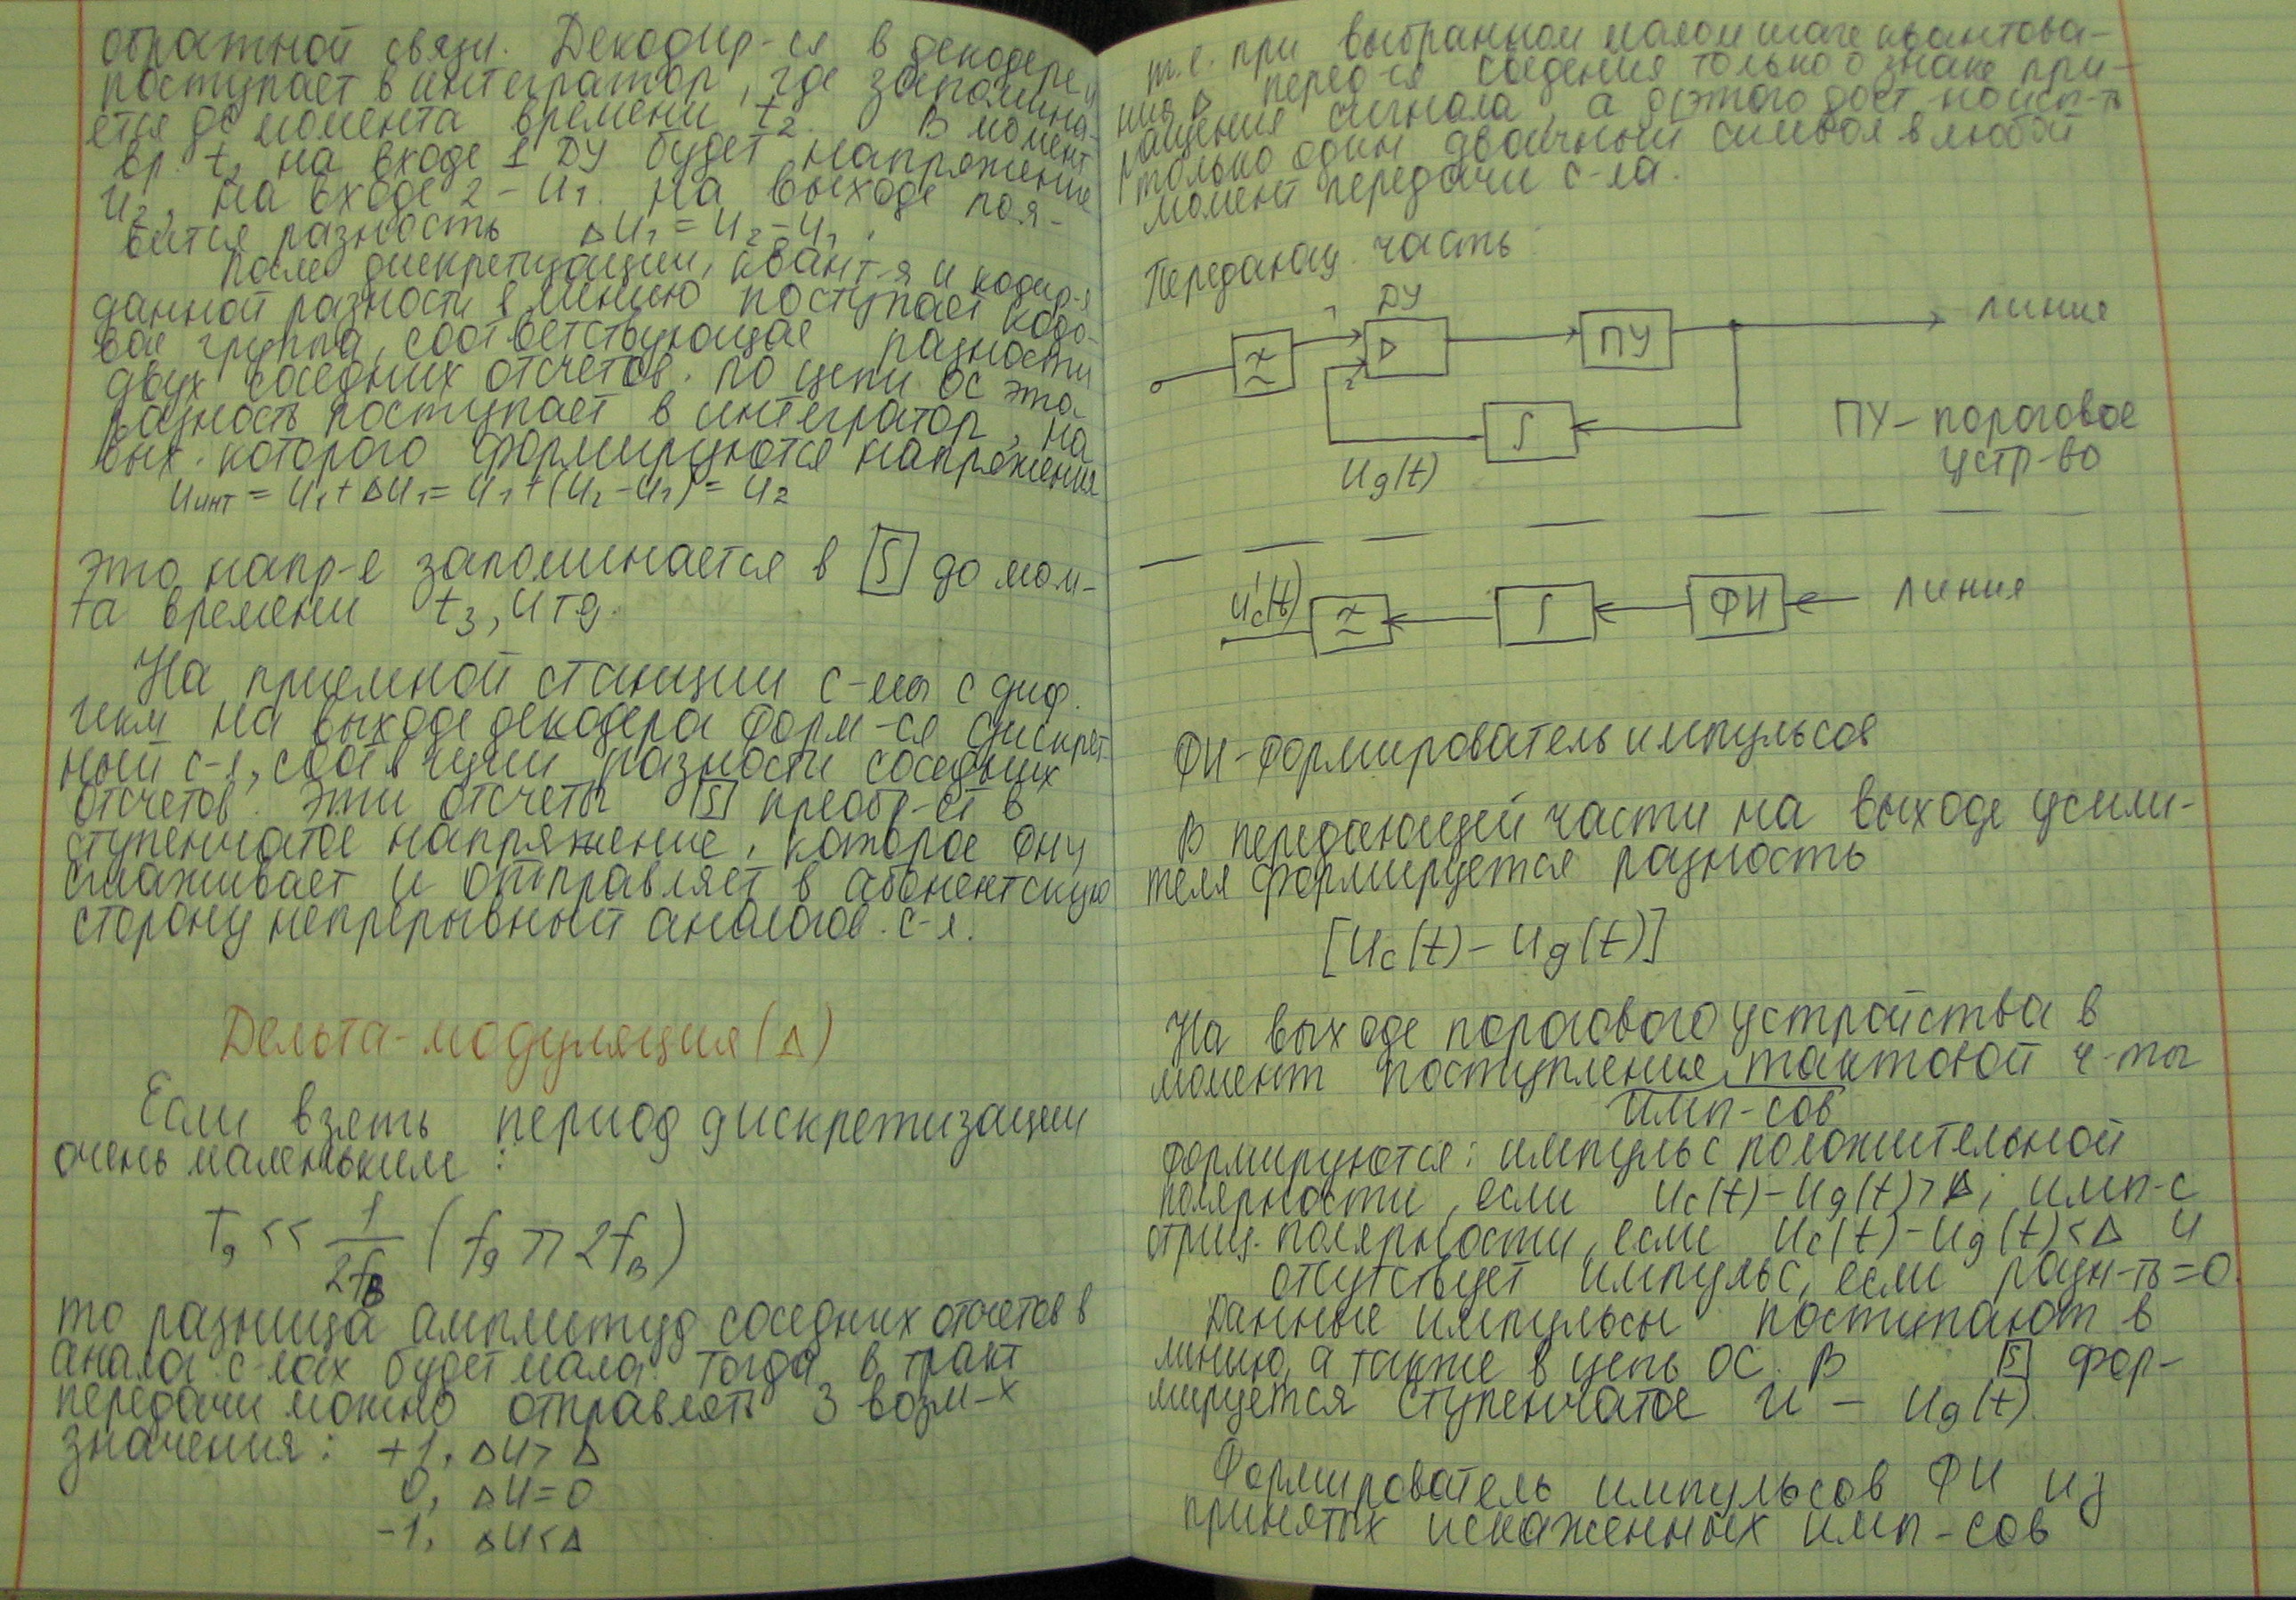 обратной связи. Декодир-ся в декодере и
поступает в интегратор, где запомина-
ется до момента времени t2. В момент
вр. t2 на входе 1 ДУ будет напряжение
U2, на входе 2 - U1. На выходе поя-
вится разность ΔU1 = U2 - U1.
После дискретизации, квант-я и кодир-я
данной разности в линию поступает кодо-
вая группа, соответствующая разности
двух соседних отсчетов. По цепи ОС эта
разность поступает в интегратор, на
вых. которого формируются напряжения
Uинт = U1 + ΔU1 = U1 + (U2 - U1) = U2
Это напр-е запоминается в [∫] до мом-
та времени t3, и тд.
На приемной станции с-мы с диф.
икм на выходе декодера форм-ся дискрет-
ный с-л, соотв щий разности соседних
отсчетов. Эти отсчеты [∫] преобр-ет в
ступенчатое напряжение, которое ФНЧ
сглаживает и отправляет в абонентскую
сторону непрерывный аналогов. с-л.
Дельта-модуляция (Δ)
Если взять период дискретизации
очень маленьким :
Tд << 1/2fв (fд >> 2fв)
то разница амплитуд соседних отсчетов в
аналог с-лах будет мала. Тогда в тракт
передачи можно отправлять 3 возм-х
значения: +1, ΔU > Δ
0, ΔU = 0
-1, ΔU < Δ
т.е. при выбранном малом шаге квантова-
ния Δ перед-ся сведения только о знаке при-
ращения сигнала, а д/этого дост-но исп-ть
только один двоичный символ в любой
момент передачи с-ла.
Передающ. часть :
1 ДУ
≃ Δ ПУ линия
2
∫
Uд(t)
ПУ - пороговое
устр-во
U'c(t) ≃ ∫ ФИ линия
ФИ - формирователь импульсов
В передающей части на выходе усили-
теля формируется разность
[Uc(t) - Uд(t)]
На выходе порогового устройства в
момент поступления тактовой ч-ты
имп-сов
формируются: импульс положительной
полярности, если Uc(t) - Uд(t) > Δ; имп-с
отриц. полярности, если Uc(t) - Uд(t) < Δ и
отсутствует импульс, если разн-ть = 0.
Данные импульсы поступают в
линию, а также в цепь ОС. В [∫] фор-
мируется ступенчатое U - Uд(t).
Формирователь импульсов ФИ из
принятых искаженных имп-сов